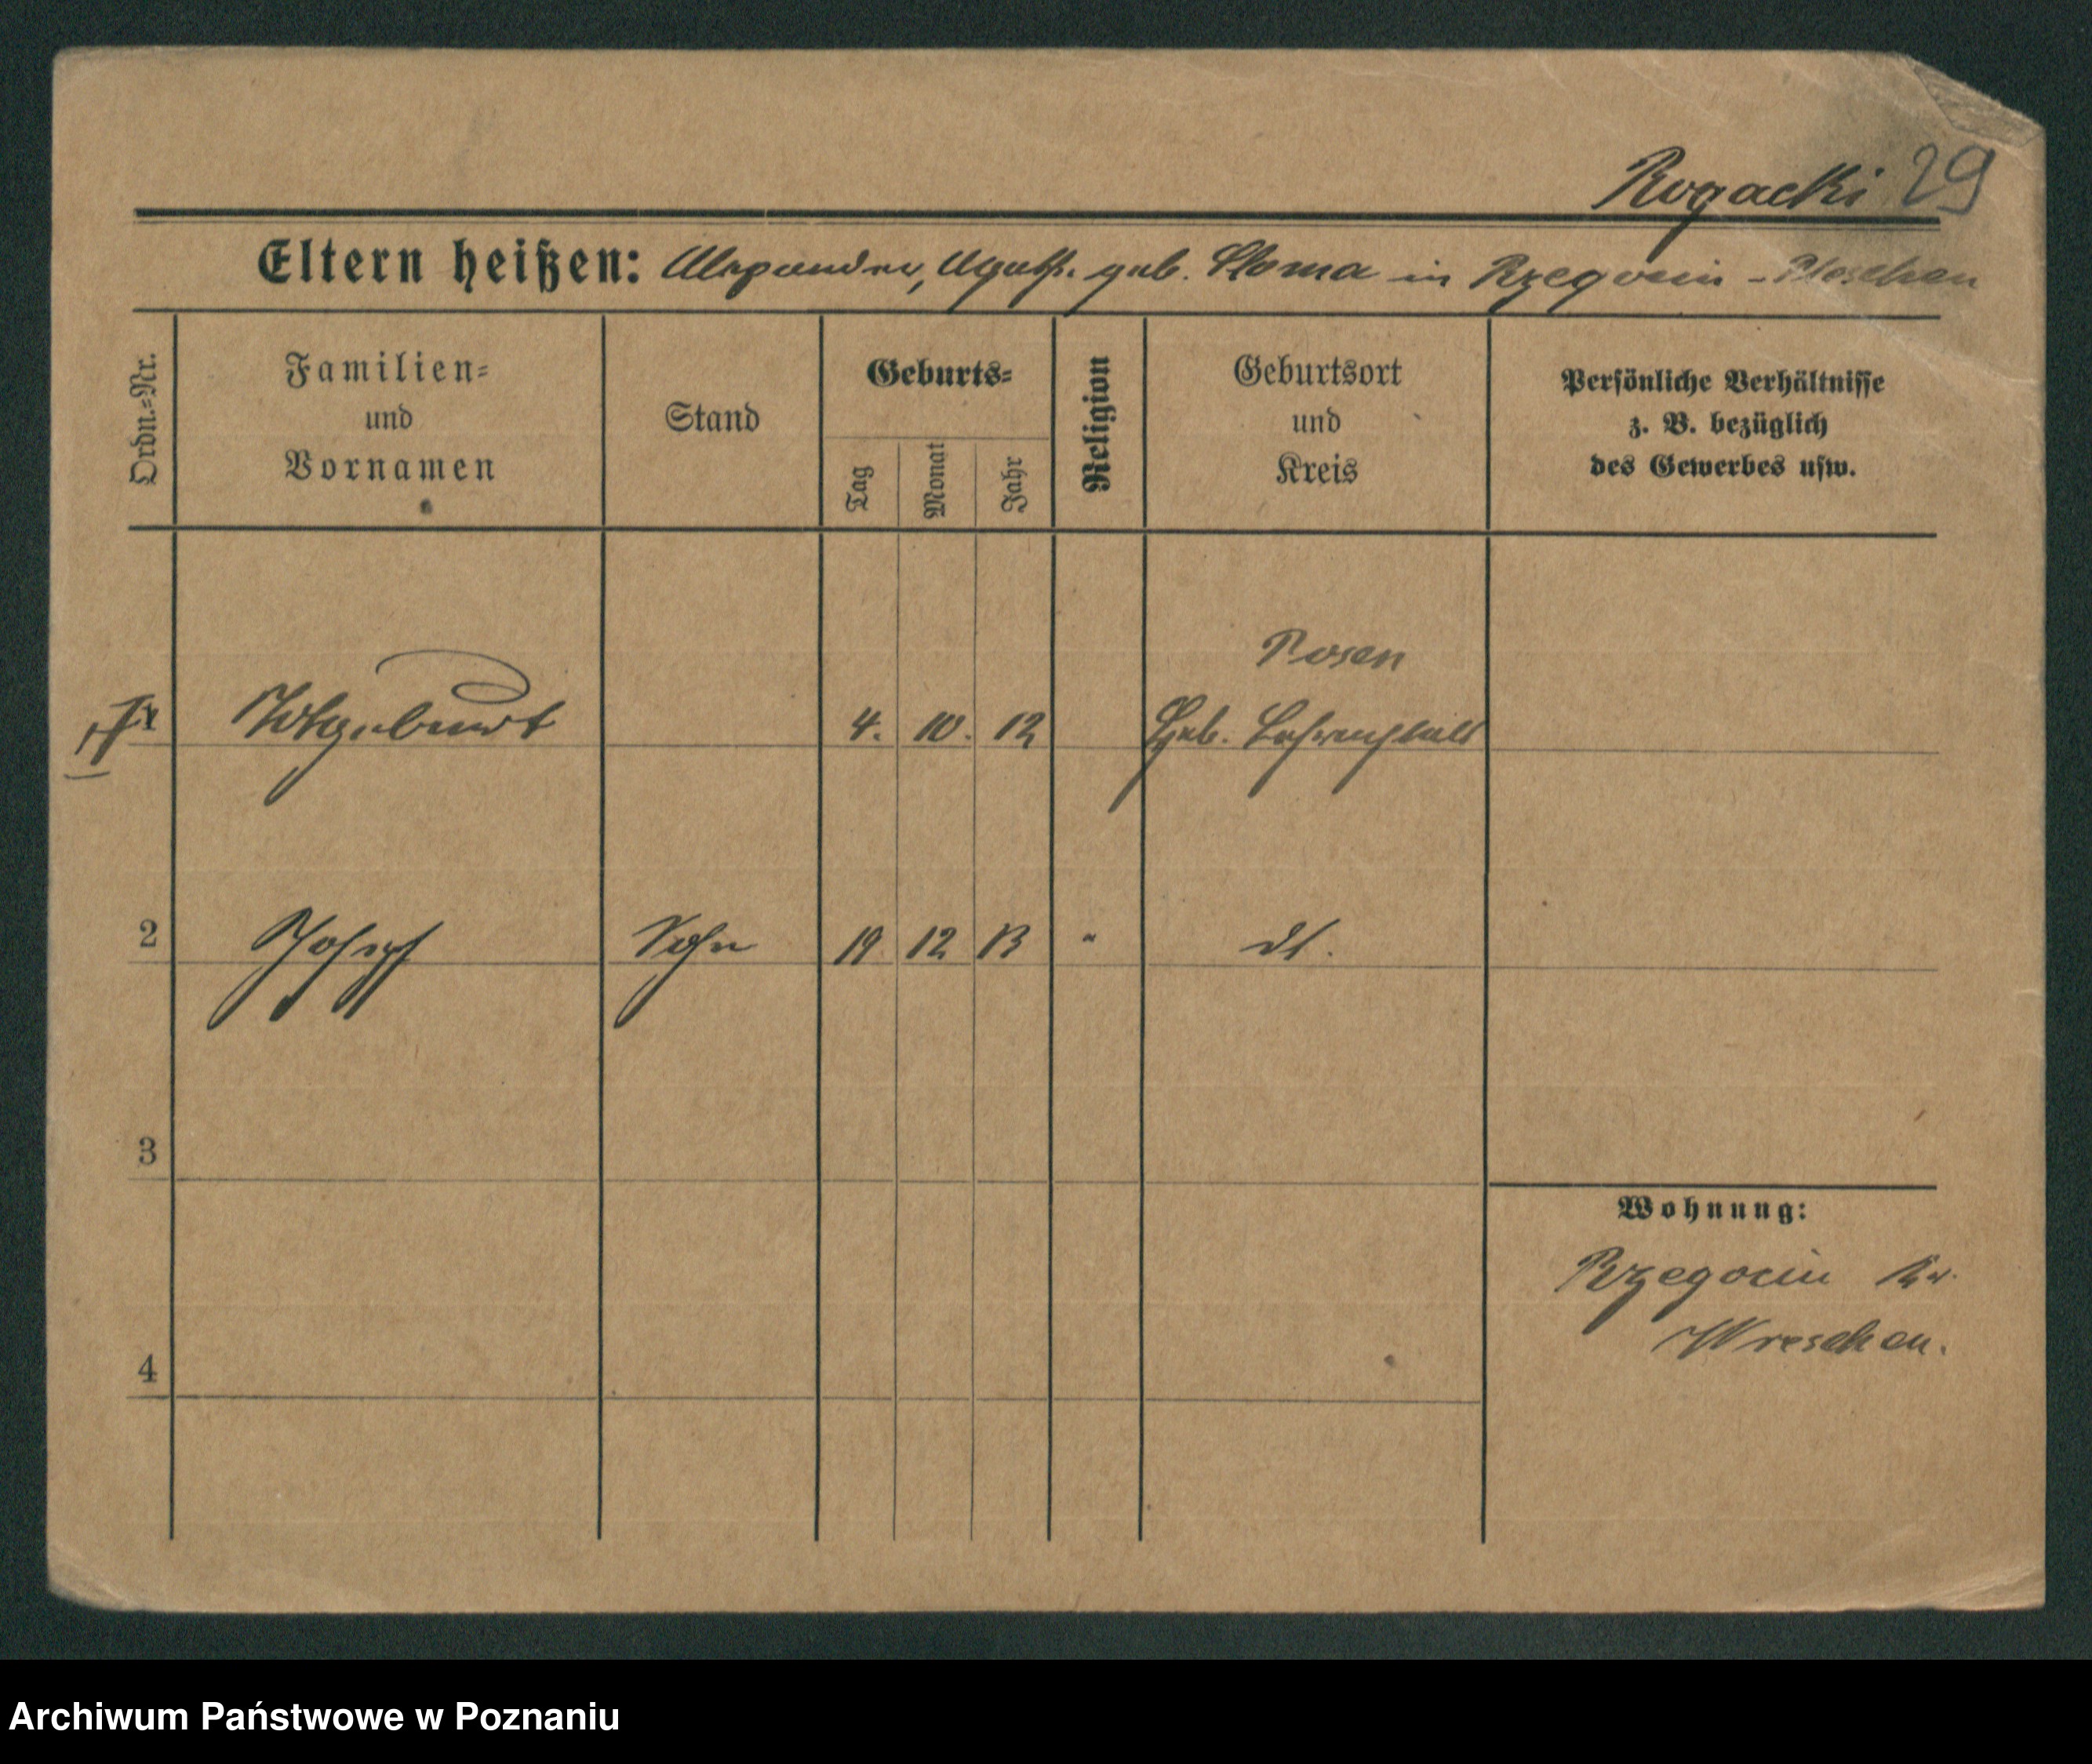 Rogacki 29
Eltern heißen: Alexander, Agath. geb. Sloma in Rzegocin - Pleschen
Ordn.=Nr.
Familien=
und
Vornamen
Stand
Geburts=
Tag
Monat
Jahr
Religion
Geburtsort
und
Kreis
Persönliche Verhältnisse
z. B. bezüglich
des Gewerbes usw.
Posen
1 Totgeburt 4. 10. 12 Heb. Lehranstalt
2 Joseph Sohn 19 12 13 " dt.
3
Wohnung:
Rzegocin Kr.
Wreschen.
4
Archiwum Państwowe w Poznaniu